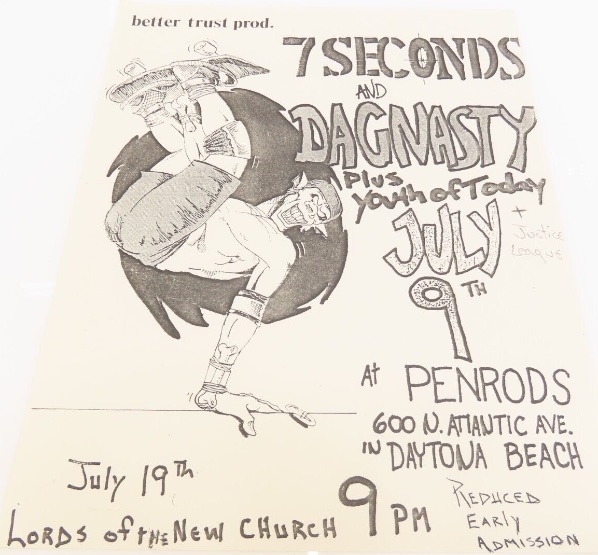 better trust prod.
7 SECONDS
AND
DAGNASTY
Plus
Youth of Today
+ Justice
League
JULY
9TH
At PENRODS
600 N. ATLANTIC AVE.
IN DAYTONA BEACH
9 PM
REDUCED
EARLY
ADMISSION
July 19th
LORDS of the NEW CHURCH